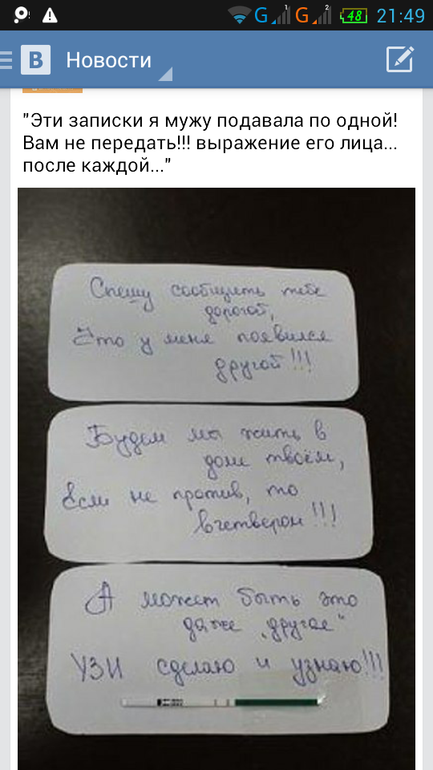 48
21:49
В
Новости
"Эти записки я мужу подавала по одной!
Вам не передать!!! выражение его лица...
после каждой..."
Спешу сообщить тебе
дорогой,
Что у меня появился
другой!!!
Будем мы жить в
доме твоём,
Если не против, то
вчетвером!!!
А может быть это
даже "другая"
УЗИ сделаю и узнаю!!!